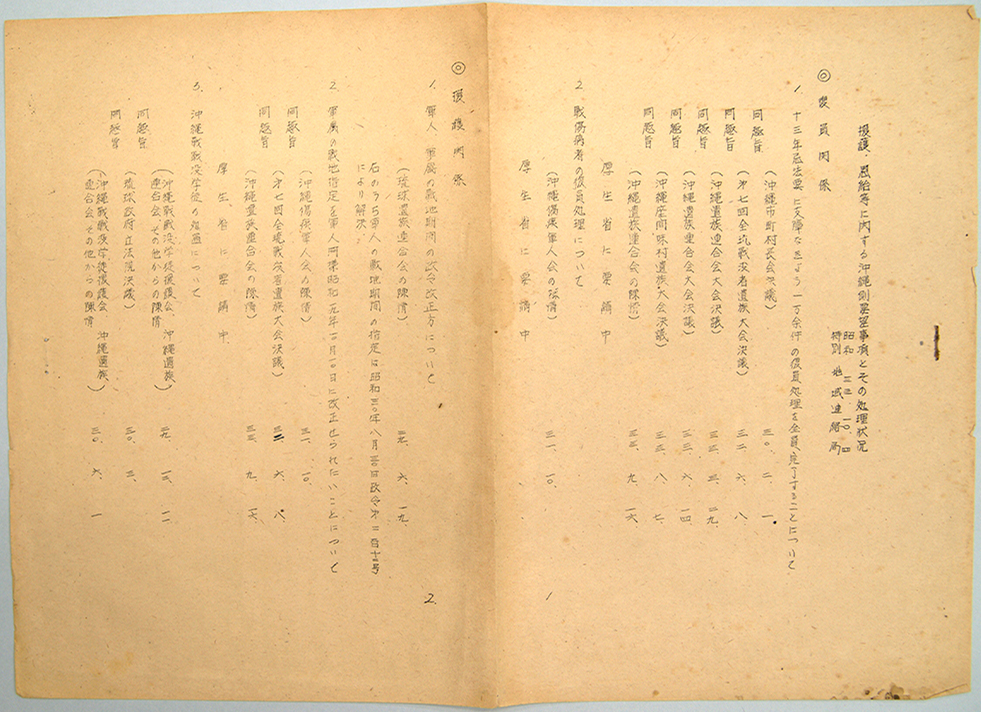 援護、恩給等に関する沖縄側要望事項とその処理状況
昭和三三、一〇、四
特別地域連絡局
◎復員関係
1、十三年忌法要に支障なきよう一万余件の復員処理を全員完了することについて
(沖縄市町村長会決議) 三〇、二、一
同趣旨 (第七回全坑戦没者遺族大会決議) 三二、六、八
同趣旨 (沖縄遺族連合会大会決議) 三三、三、二九
同趣旨 (沖縄遺族連合会大会決議) 三三、六、一四
同趣旨 (沖縄座間味村遺族大会決議) 三三、八、七
同趣旨 (沖縄遺族連合会の陳情) 三三、九、一六
厚生省に要請中
2、戦傷病者の復員処理について
(沖縄傷痍軍人会の陳情) 三一、一〇、
厚生省に要請中
1
◎援護関係
1、軍人、軍属の戦地期間の政令改正方について
(琉球遺族連合会の陳情) 二九、六、一九、
右のうち軍人の戦地期間の指定は昭和三〇年八月三〇日政令第二百十号
により解決。
2、軍属の戦地指定を軍人同様昭和一九年一〇月一〇日に改正せられたいことについて
同趣旨 (沖縄傷痍軍人会の陳情) 三一、一〇、
同趣旨 (第七回全琉戦没者遺族大会決議) 三二、六、八、
(沖縄遺族連合会の陳情) 三三、九、一六、
厚生省に要請中
3、沖縄戦戦没学徒の処遇について
(沖縄戦戦没学徒援護会、沖縄遺族
連合会、その他からの陳情) 二九、一二、一一
同趣旨 (琉球政府立法院決議) 三〇、二、
同趣旨 (沖縄戦戦没学徒援護会、沖縄遺族
連合会、その他からの陳情) 三〇、六、一
2